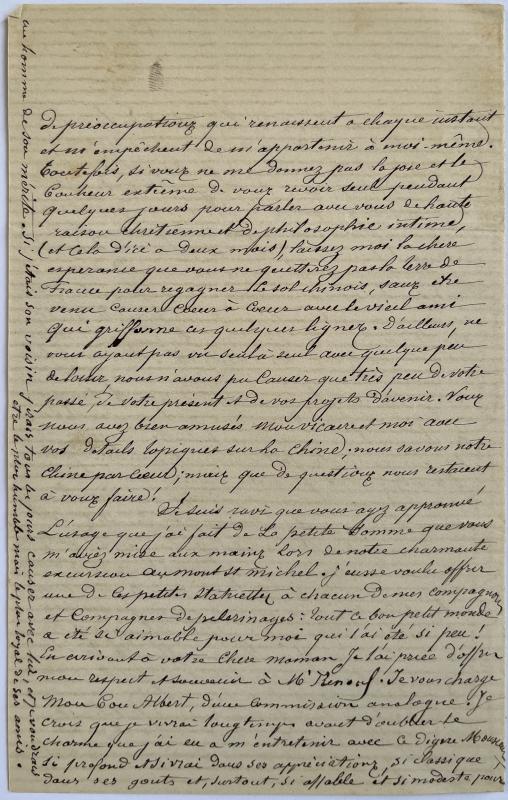 de préoccupations qui renaissent à chaque instant
et m'empêchent de m'appartenir à moi-même.
Toutefois, si vous ne me donnez pas la joie et le
bonheur extrème de vous revoir seul pendant
quelques jours pour parler avec vous de haute
raison chrétienne et de philosophie intime,
(et cela d'ici a deux mois), laissez moi la chère
esperance que vous ne quitterez pas la terre de
France pour regagner le sol chinois, sans être
venu causer coeur à coeur avec le vieil ami
qui griffonne ces quelques lignes. D'ailleurs, ne
vous ayant pas vu seul à seul avec quelque peu
de loisir nous n'avons pu causer que très peu de votre
passé, de votre présent et de vos projets d'avenir. Vous
nous avez bien amusés mon vicaire et moi avec
vos details topiques sur la Chine, nous savons notre
Chine par coeur; mais que de questions nous restent
à vous faire!
Je suis ravi que vous ayez approuvé
l'usage que j'ai fait de la petite somme que vous
m'aviez mise aux mains lors de notre charmante
excursion au mont st michel. j'eusse voulu offrir
une de ces petites statuettes à chacun de mes compagnons
et compagnes de pelerinages: tout ce bon petit monde
a été si aimable pour moi qui l'ai été si peu!
En ecrivant à votre chere maman je l'ai priée d'offrir
mon respect et souvenir à Mr Renouf. Je vous charge
Mon bon Albert, d'une commission analogue. Je
crois que je vivrai longtemps avant d'oublier le
charme que j'ai eu a m'entretenir avec ce digne Monsieur
si profond et si vrai dans ses appréciations, si classique
dans ses gouts et, surtout, si affable et si modeste pour
un homme de son mérite. Si j'étais son voisin j'irais tous les jours causer avec lui et je voudrais
etre le plus humble mais le plus loyal de ses amis.